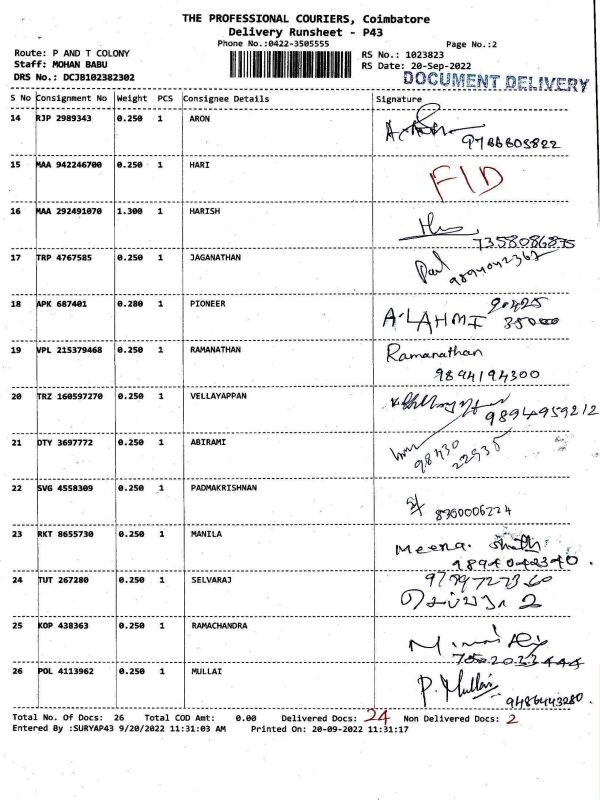 THE PROFESSIONAL COURIERS, Coimbatore
Delivery Runsheet - P43
Phone No.:0422-3505555
Page No.:2
Route: P AND T COLONY
RS No.: 1023823
Staff: MOHAN BABU
RS Date: 20-Sep-2022
DRS No.: DCJB102382302
DOCUMENT DELIVERY
S No Consignment No Weight PCS Consignee Details Signature
14 RJP 2989343 0.250 1 ARON
9766605822
15 MAA 942246700 0.250 1 HARI
FID
16 MAA 292491070 1.300 1 HARISH
7358086875
17 TRP 4767585 0.250 1 JAGANATHAN
9894042367
18 APK 687401 0.280 1 PIONEER
A·LAHMI
19 VPL 215379468 0.250 1 RAMANATHAN Ramanathan
9894194300
20 TRZ 160597270 0.250 1 VELLAYAPPAN
9894959212
21 DTY 3697772 0.250 1 ABIRAMI
98430
22935
22 SVG 4558309 0.250 1 PADMAKRISHNAN
8300006224
23 RKT 8655730 0.250 1 MANILA
Meena. Sheth
9894042340.
24 TUT 267280 0.250 1 SELVARAJ
25 KOP 438363 0.250 1 RAMACHANDRA
26 POL 4113962 0.250 1 MULLAI
P. Mullai
9486443280.
Total No. Of Docs: 26 Total COD Amt: 0.00 Delivered Docs: 24 Non Delivered Docs: 2
Entered By :SURYAP43 9/20/2022 11:31:03 AM Printed On: 20-09-2022 11:31:17